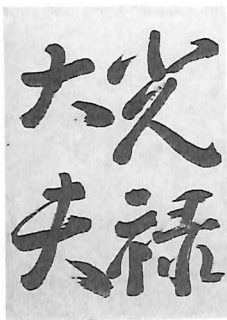 光祿
大夫